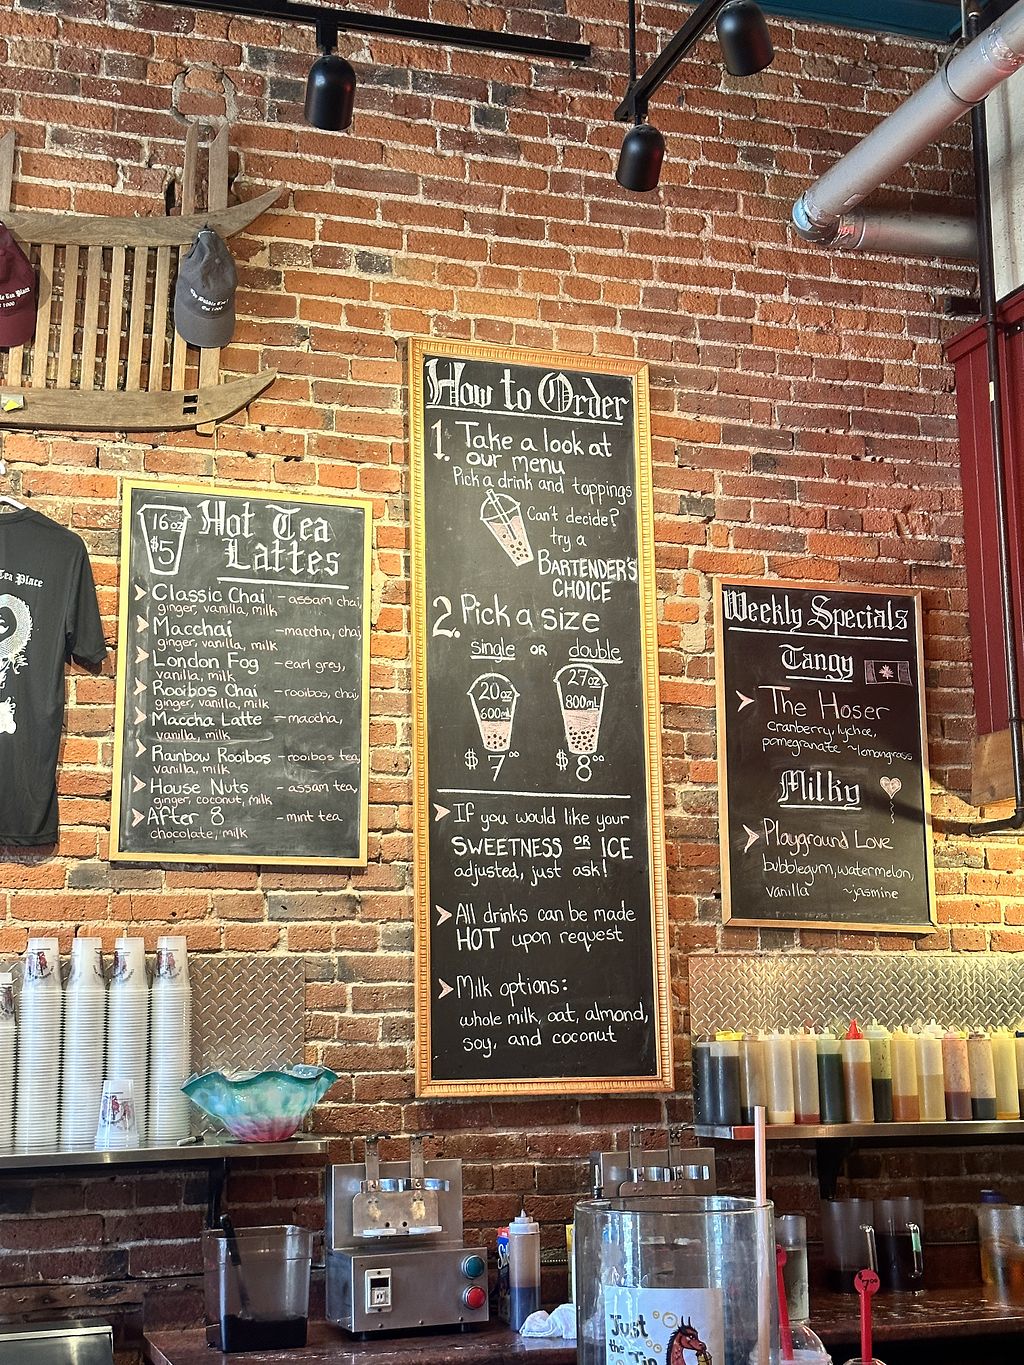 Tea Place
16 oz
$5
Hot Tea
Lattes
Classic Chai - assam chai,
ginger, vanilla, milk
Macchai - maccha, chai
ginger, vanilla, milk
London Fog - earl grey,
vanilla, milk
Rooibos Chai - rooibos, chai,
ginger, vanilla, milk
Maccha Latte - maccha,
vanilla, milk
Rainbow Rooibos - rooibos tea,
vanilla, milk
House Nuts - assam tea,
ginger, coconut, milk
After 8 - mint tea
chocolate, milk
How to Order
1. Take a look at
our menu
Pick a drink and toppings
Can't decide?
try a
BARTENDER'S
CHOICE
2. Pick a size
single OR double
20oz
600mL
27oz
800mL
$7.00
$8.00
If you would like your
SWEETNESS OR ICE
adjusted, just ask!
All drinks can be made
HOT upon request
Milk options:
whole milk, oat, almond,
soy, and coconut
Weekly Specials
Tangy
The Hoser
cranberry, lychee,
pomegranate ~lemongrass
Milky
Playground Love
bubblegum, watermelon,
vanilla ~jasmine
Just
the Tip
$7.00